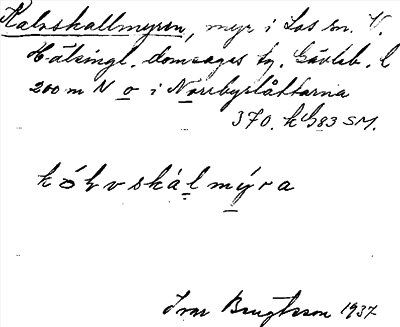 Kalvskallmyren, myr i Los sn. V.
Hälsingl. domsagas tg. Gävleb. l
200 m N o i Norrbyslåttarna
370. k G83 SM.
k ó v s k á l m ý r a
Ivar Bengtsson 1937